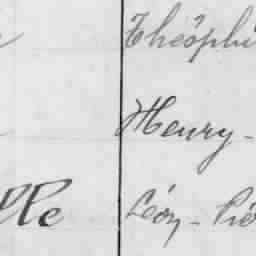 Théophi
Henry -
lle Léon - Pié